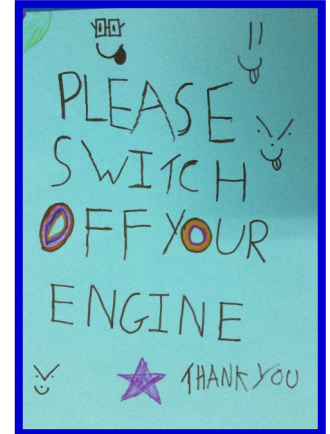 PLEASE
SWITCH
OFF YOUR
ENGINE
THANK YOU